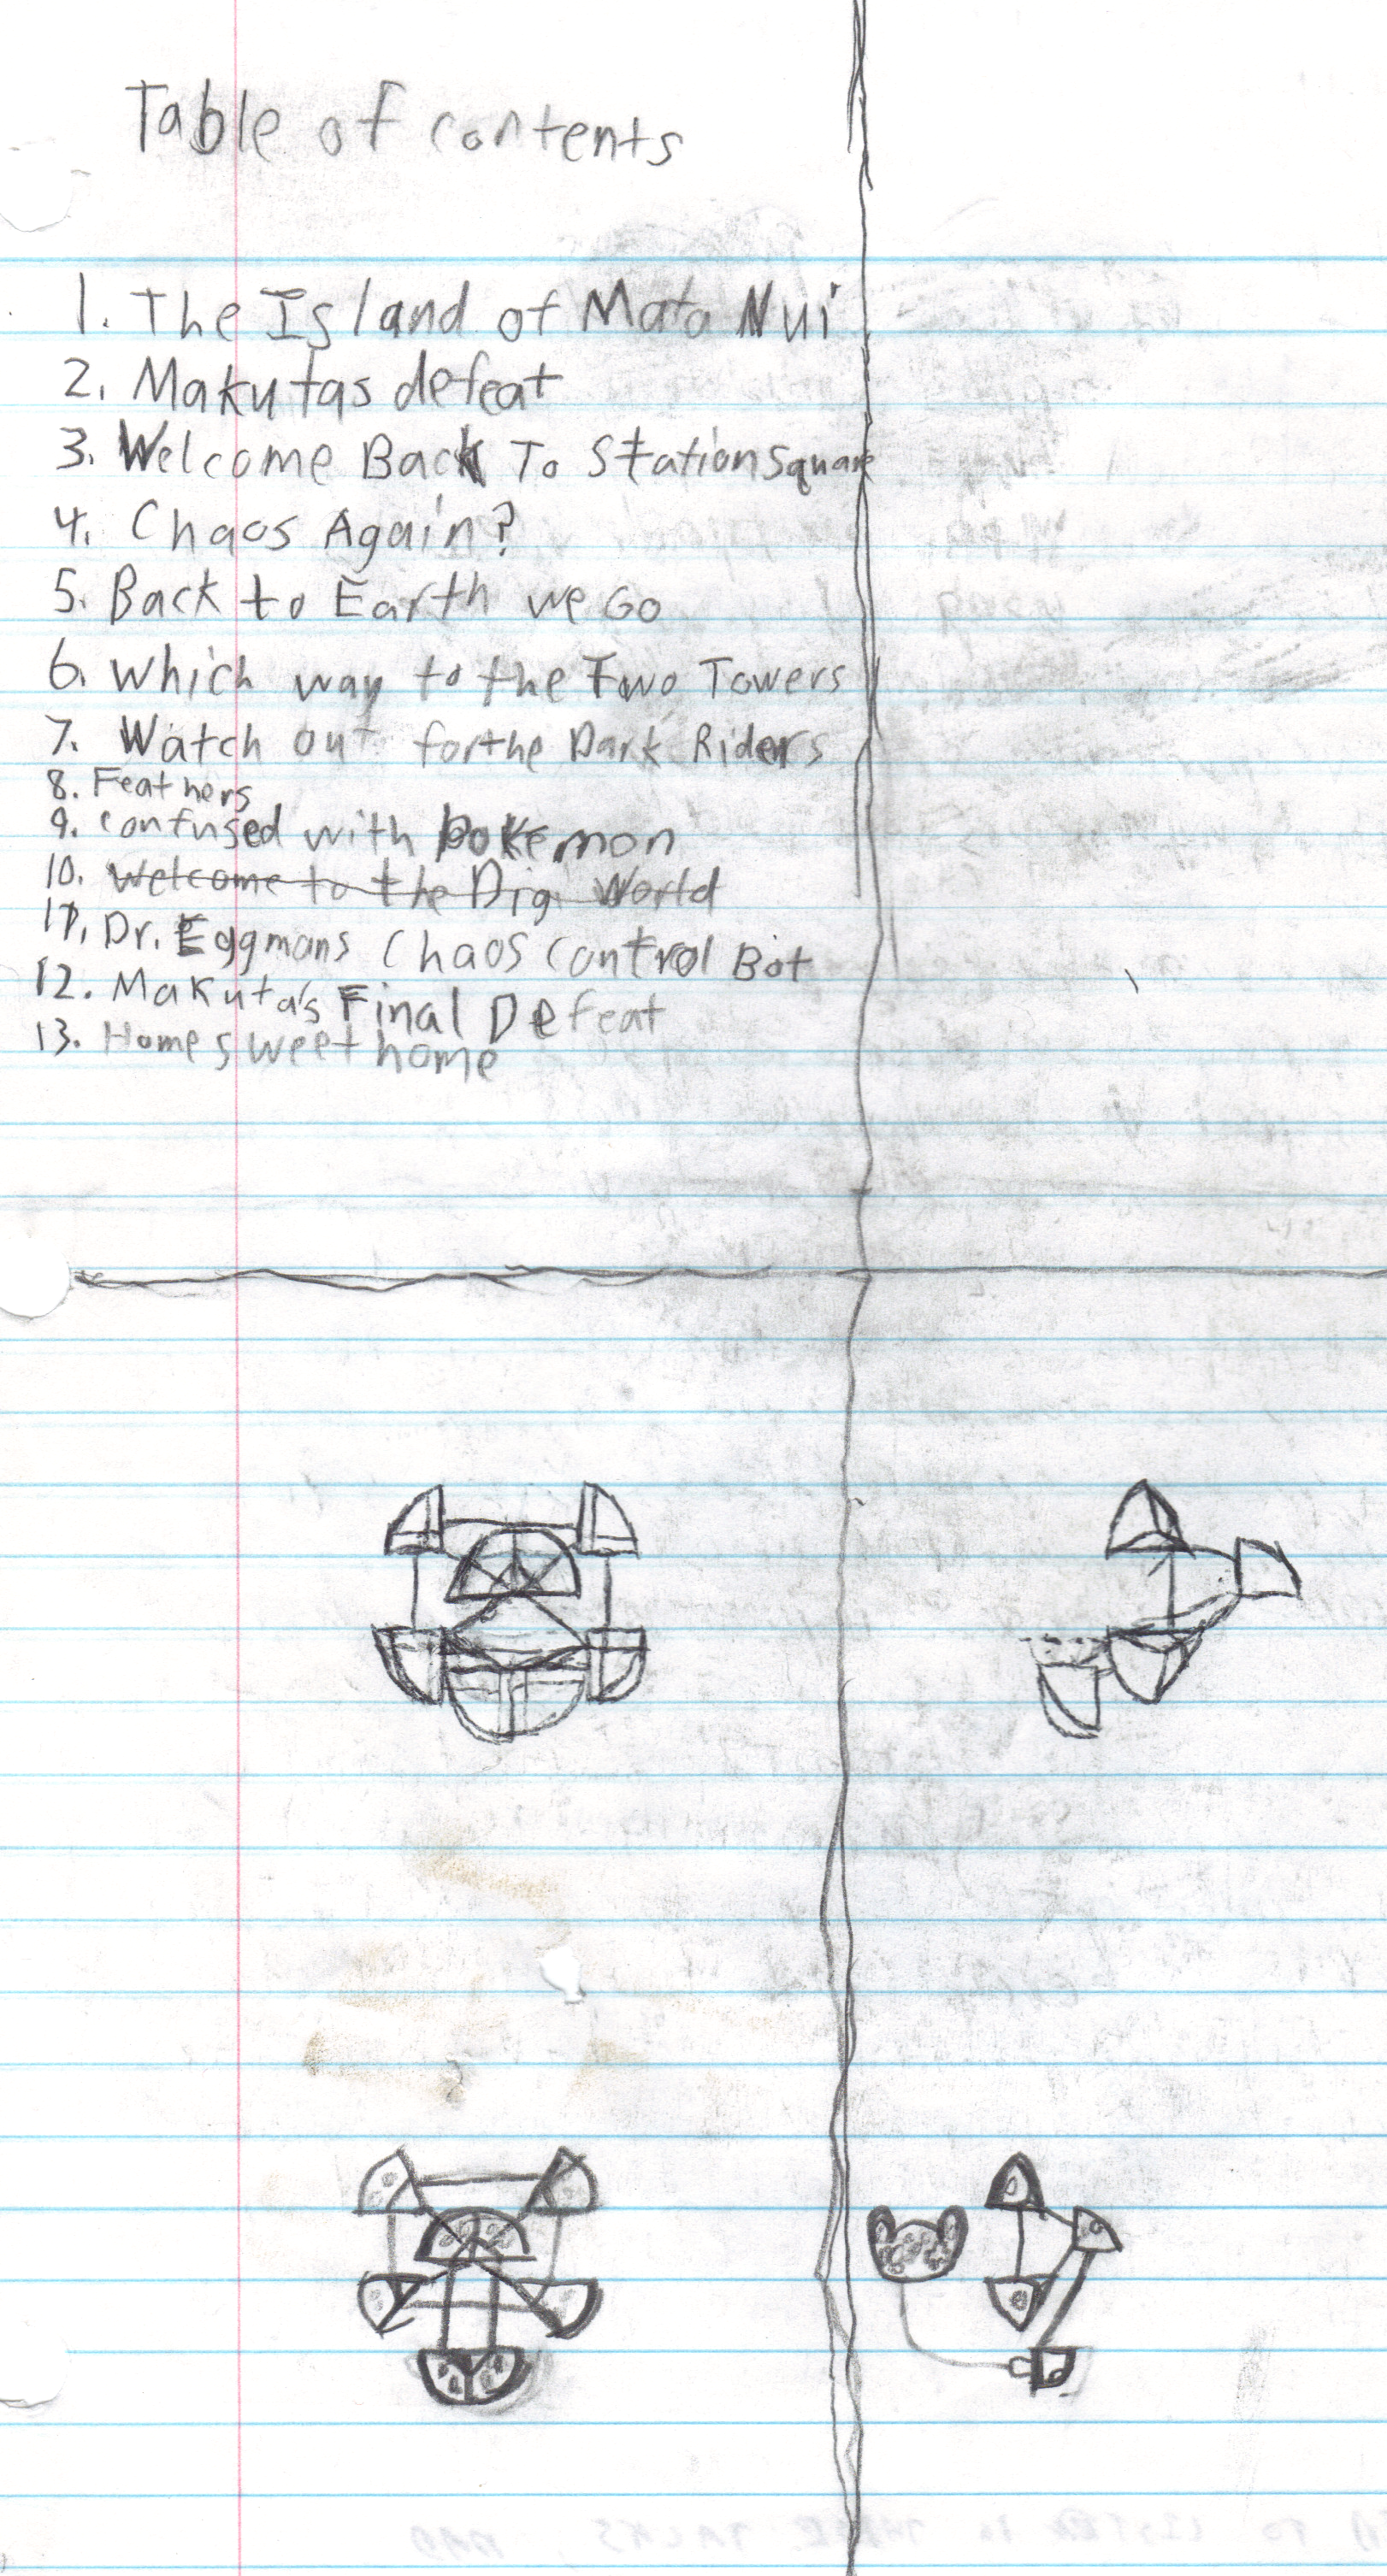 Table of contents
1. The Island of Mata Nui
2. Makutas defeat
3. Welcome Back To Station Square
4. Chaos Again?
5. Back to Earth we Go
6. Which way to the Two Towers
7. Watch out for the Dark Riders
8. Feathers
9. confused with pokemon
10. Welcome to the Digi World
11. Dr. Eggmans Chaos Control Bot
12. Makuta's Final Defeat
13. Home sweet home